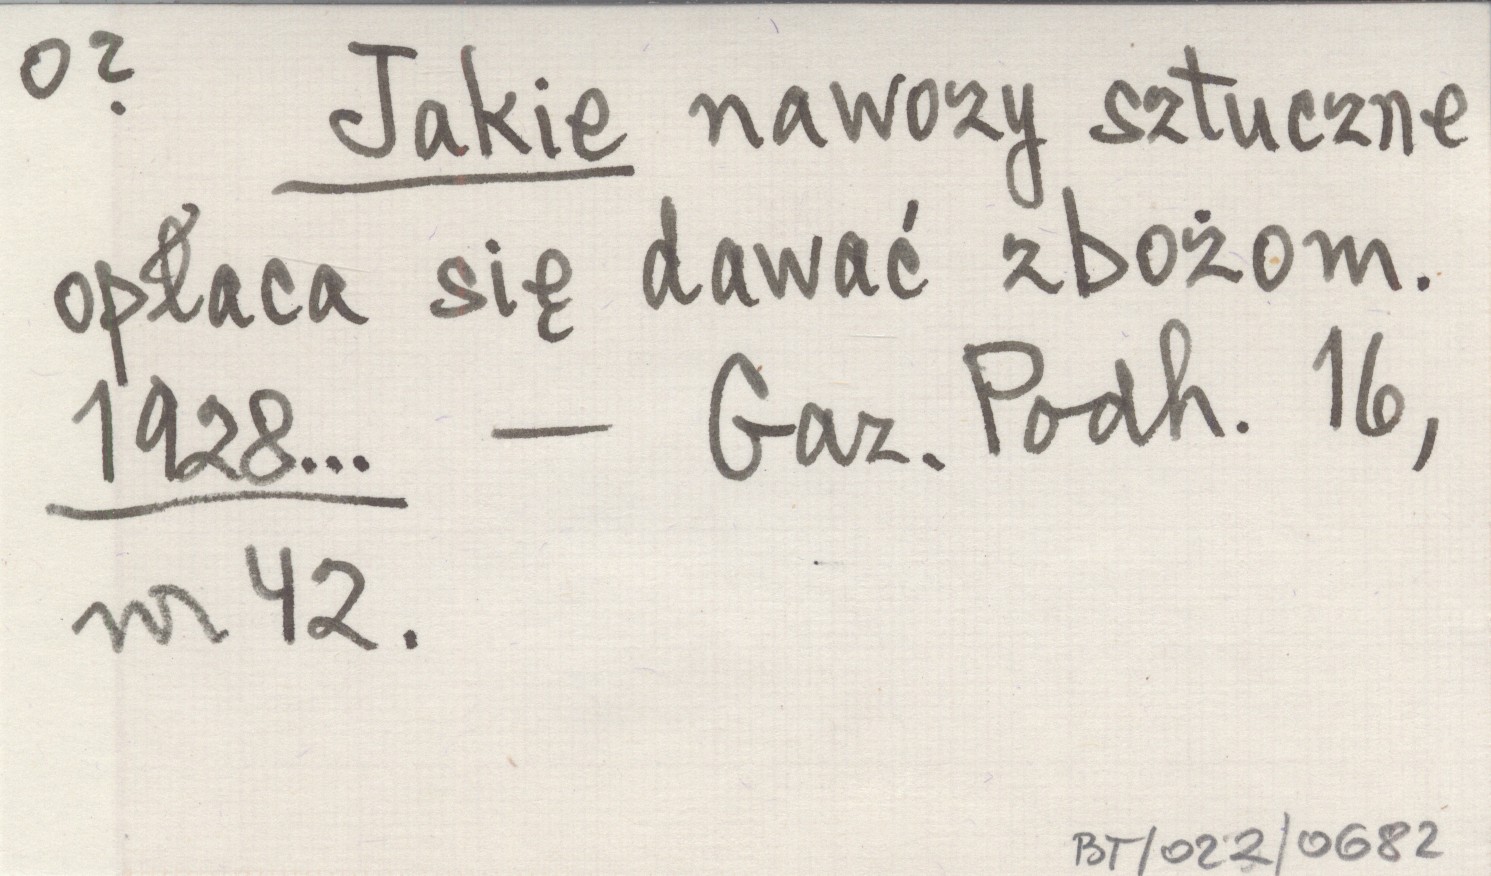 o? Jakie nawozy sztuczne
opłaca się dawać zbożom.
1928... — Gaz. Podh. 16,
nr 42.
BT/022/0682